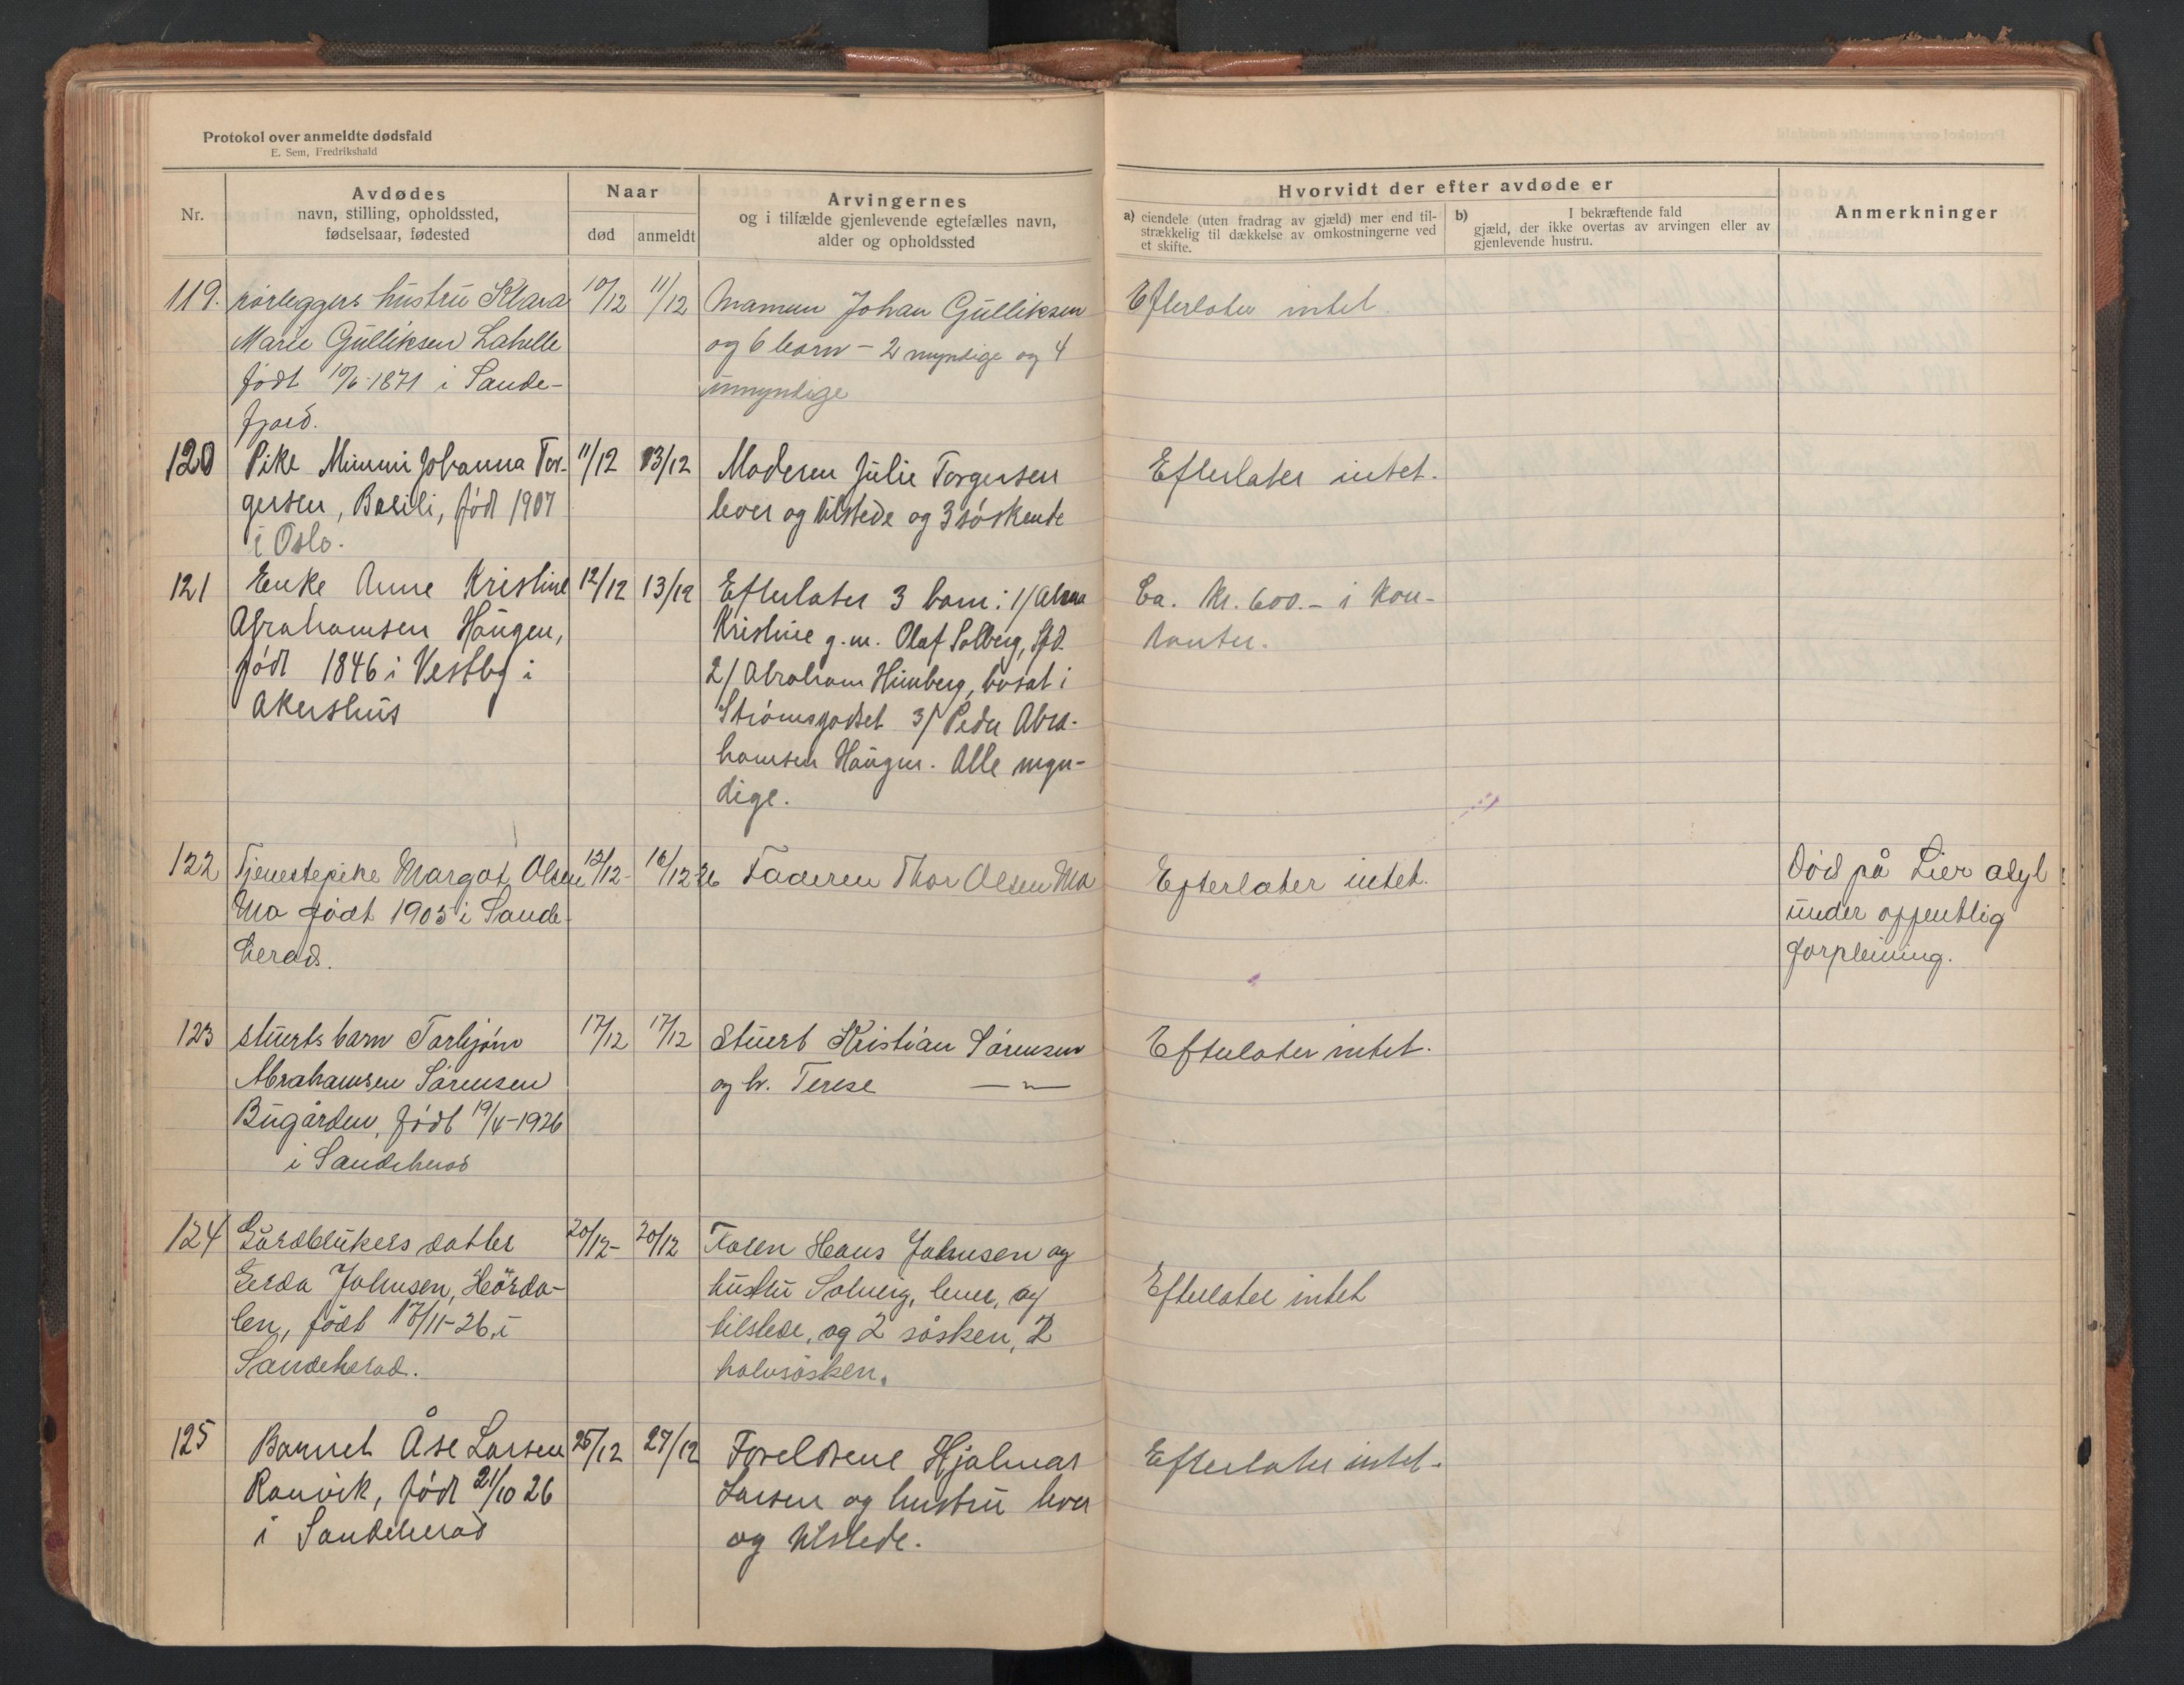 Protokol over anmeldte dødsfald
E. Sem, Fredrikshald
Nr.
Avdødes
navn, stilling, opholdssted,
fødselsaar, fødested
Naar
død
anmeldt
Arvingernes
og i tilfælde gjenlevende egtefælles navn,
alder og opholdssted
Hvorvidt der efter avdøde er
a) eiendele (uten fradrag av gjæld) mer end til-
strækkelig til dækkelse av omkostningerne ved
et skifte.
b) I bekræftende fald
gjæld, der ikke overtas av arvingen eller av
gjenlevende hustru.
Anmerkninger
119. rørleggers hustru Klara
Marie Gulliksen Lahelle
født 10/6-1871 i Sande-
fjord.
10/12
11/12
Mannen Johan Gulliksen
og 6 barn – 2 myndige og 4
umyndige
Efterlater intet.
120 Pike Mimmi Johanna Tor-
gersen, Basili, født 1907
i Oslo.
11/12
13/12
Moderen Julie Torgersen
lever og tilstede og 3 søskende
Efterlater intet.
121 Enke Anne Kristine
Abrahamsen Haugen,
født 1846 i Vestby i
Akershus
12/12
13/12
Efterlater 3 barn: 1/ Alma
Kristine g.m. Olaf Solberg, Sfd.
2/ Abraham Himberg, bosat i
Strømsgodset 3/ Peder Abra-
hamsen Haugen. Alle myn-
dige.
Ca. kr. 600.- i kon-
tanter.
122 Tjenestepike Margot Olsen
Mo født 1905 i Sande
herad.
12/12-
16/12-26
Faderen Thor Olsen Mo
Efterlater intet.
Død på Lier asyl
under offentlig
forpleining.
123 stuerts barn Torbjørn
Abrahamsen Sørensen
Bugården, født 19/4-1926
i Sandeherad
17/12
17/12
Stuert Kristian Sørensen
og h. Terese — " —
Efterlater intet.
124 Gårdbrukers datter
Gerda Johnsen, Hørda-
len, født 17/11-26, i
Sandeherad.
20/12-
20/12
Faren Hans Johnsen og
hustru Solveig, lever, og
tilstede, og 2 søsken, 2
halvsøsken.
Efterlater intet
125 Barnet Åse Larsen
Ranvik, født 21/10 26
i Sandeherad
25/12
27/12
Foreldrene Hjalmar
Larsen og hustru lever
og tilstede.
Efterlater intet.